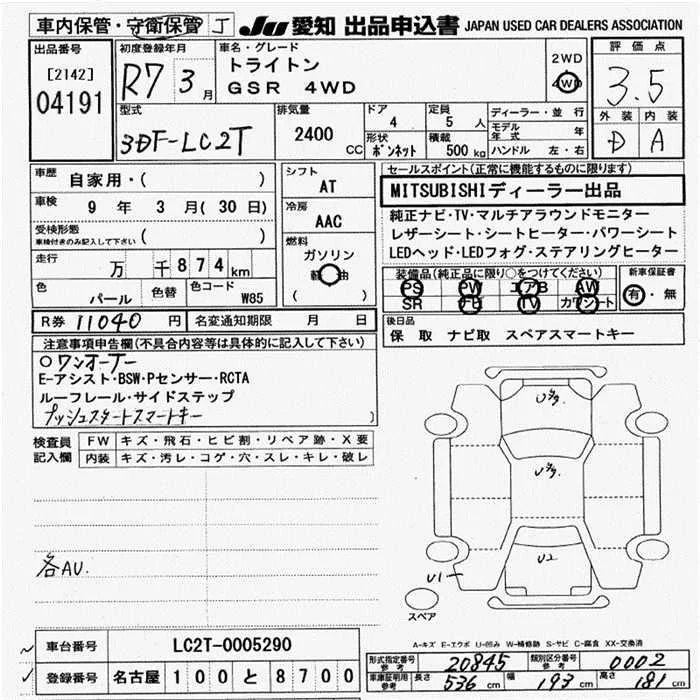 車内保管・守衛保管 J JU 愛知 出品申込書 JAPAN USED CAR DEALERS ASSOCIATION
出品番号 [2142] 04191
初度登録年月 R7 3月
車名・グレード トライトン GSR 4WD
2WD 4WD
評価点 3.5
外装 内装
D A
型式 3DF-LC2T
排気量 2400 CC
ドア 4 定員 5 人
形状 ボンネット 積載 500 kg
ディーラー・並行
モデル年式 年
ハンドル 左・右
車歴 自家用・( )
車検 9 年 3 月( 30 日)
受検形態 車検付きのみ記入して下さい ( )
走行 万 千 8 7 4 km
色 パール 色替 色コード W85
シフト AT
冷房 AAC
燃料 ガソリン 軽油 ( )
セールスポイント(正常に機能するものに限ります)
MITSUBISHIディーラー出品
純正ナビ・TV・マルチアラウンドモニター
レザーシート・シートヒーター・パワーシート
LEDヘッド・LEDフォグ・ステアリングヒーター
装備品(純正品に限り○をつけてください) 新車保証書
PS PW エアB AW
SR ナビ TV カワシート 有・無
R券 11040 円 名変通知期限 月 日
後日品
保 取 ナビ取 スペアスマートキー
注意事項申告欄(不具合内容等は具体的に記入して下さい)
○ワンオーナー
E-アシスト・BSW・Pセンサー・RCTA
ルーフレール・サイドステップ
プッシュスタートスマートキー )
検査員記入欄 FW キズ・飛石・ヒビ割・リペア跡・X要
内装 キズ・汚レ・コゲ・穴・スレ・キレ・破レ
各AU.
Uタ.
Uタ.
U2
U1
スペア
A-キズ E-エクボ U-凹み W-補修跡 S-サビ C-腐食 XX-交換済
車台番号 LC2T-0005290
登録番号 名古屋 1 0 0 と 8 7 0 0
形式指定番号参考 20845 類別区分番号参考 0002
車庫証明用参考 長さ 536 cm 幅 193 cm 高さ 181 cm